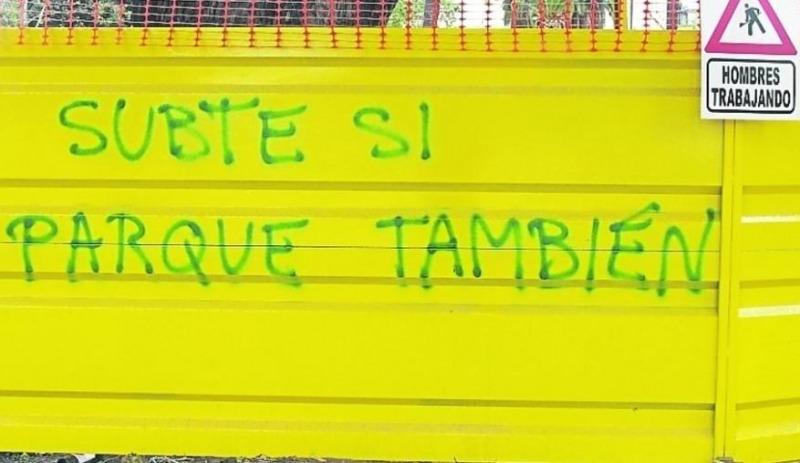 HOMBRES
TRABAJANDO
SUBTE SI
PARQUE TAMBIÉN